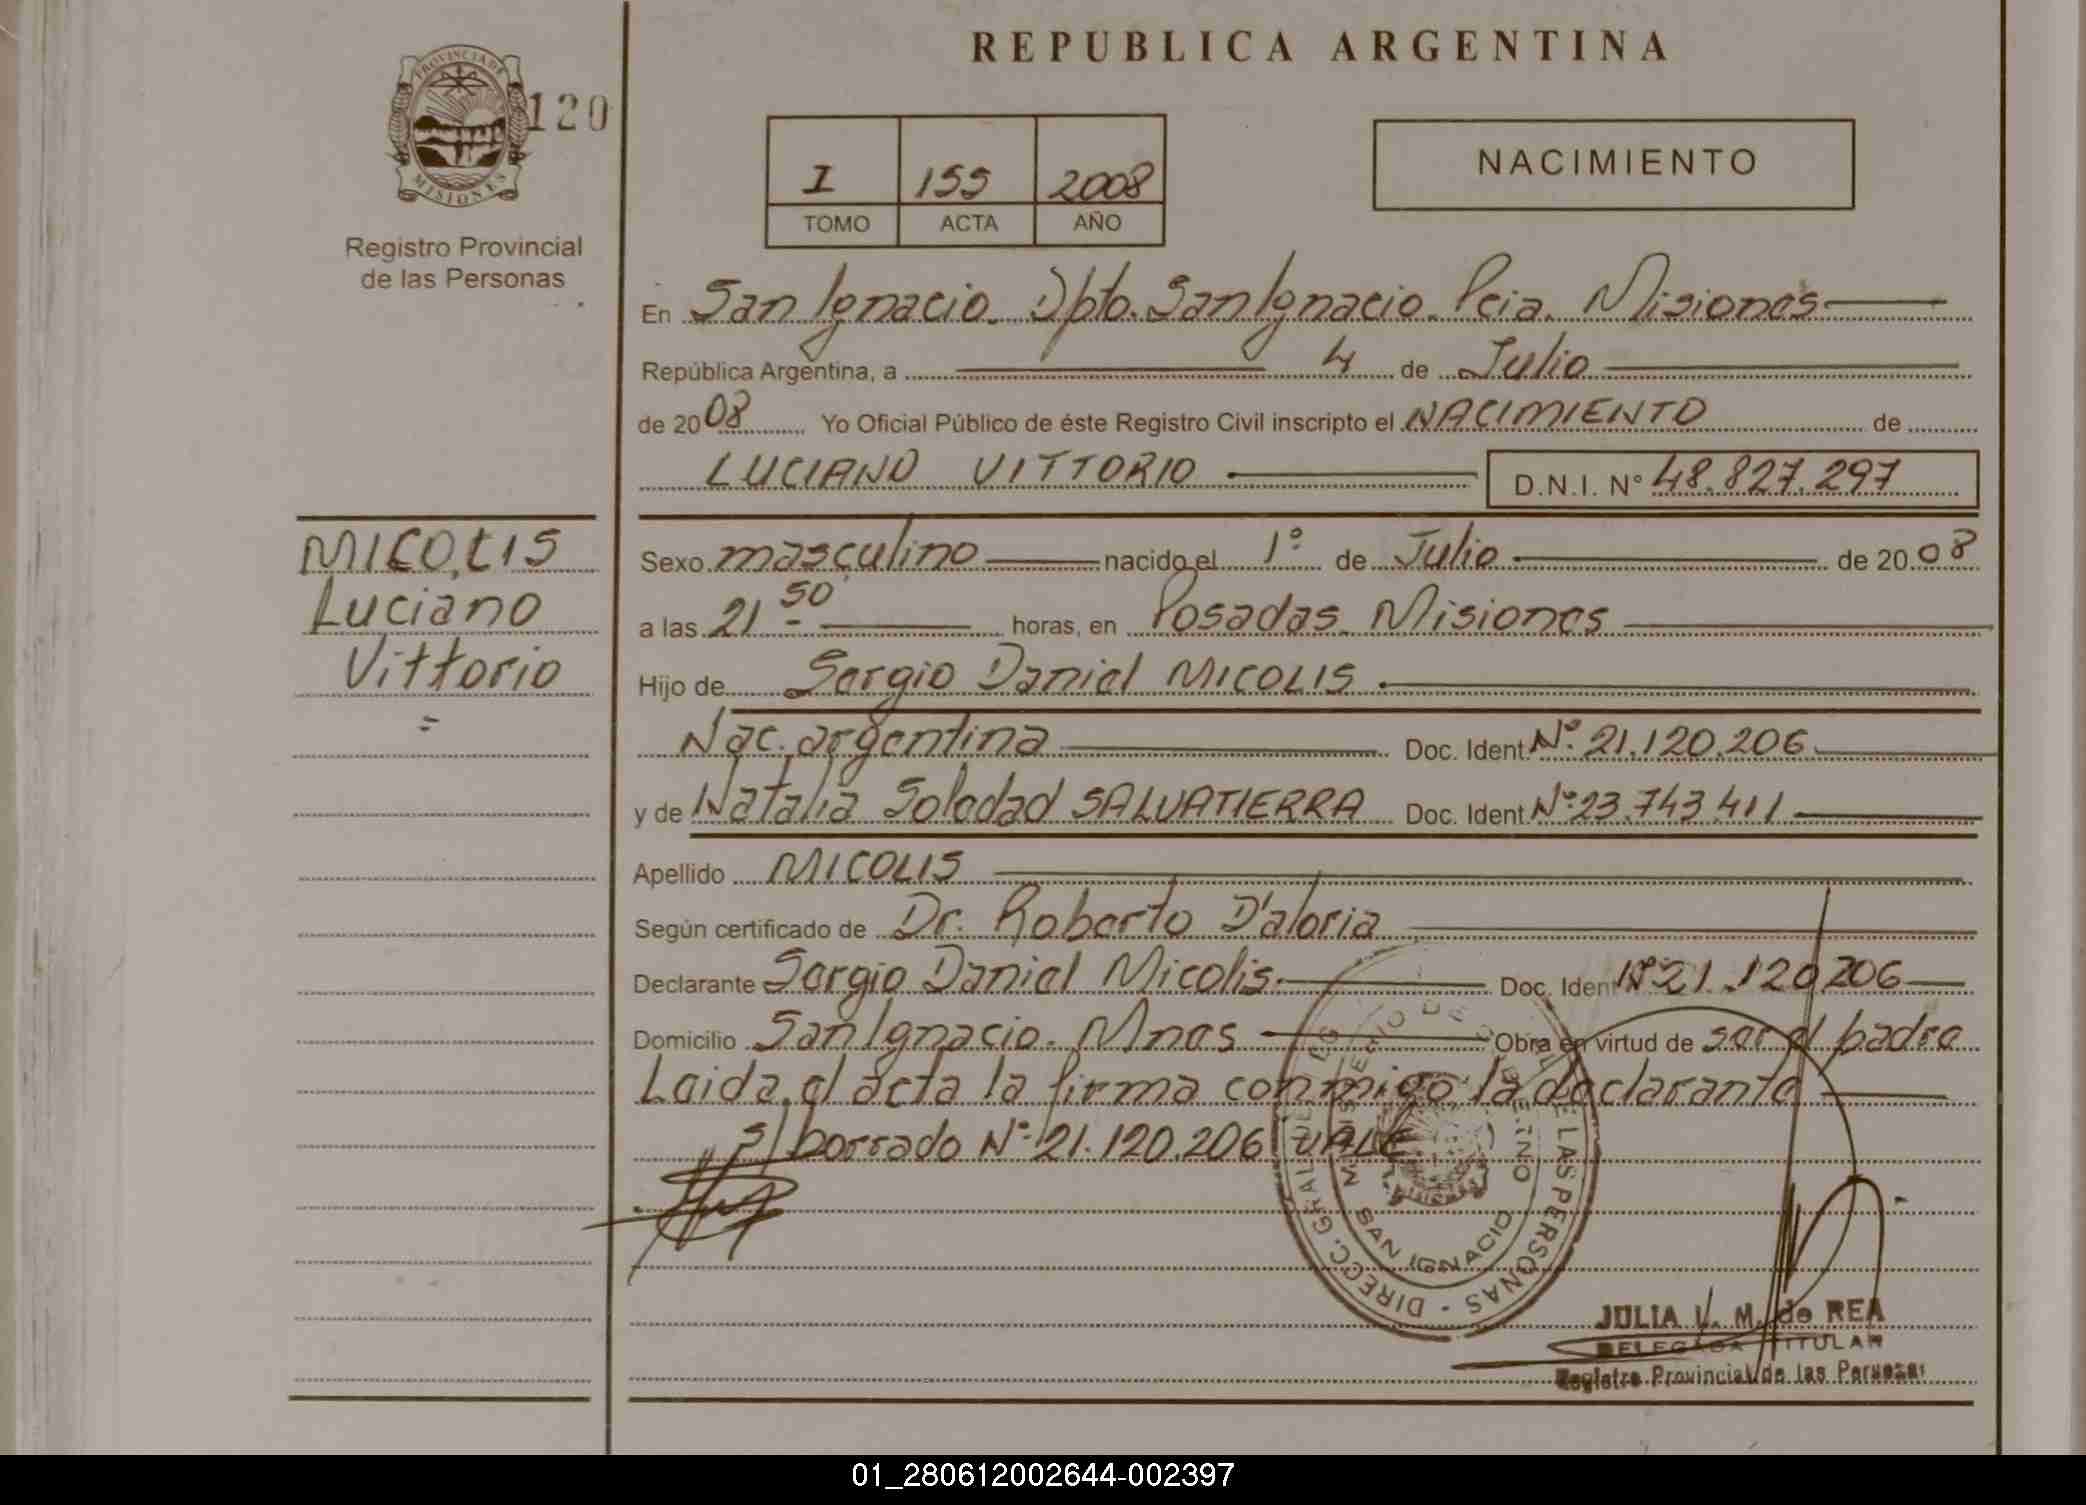 REPUBLICA ARGENTINA
PROVINCIA DE
MISIONES
120
Registro Provincial
de las Personas
I 155 2008
TOMO ACTA AÑO
NACIMIENTO
En San Ignacio. Dpto. San Ignacio. Pcia. Misiones
República Argentina, a 4 de Julio
de 2008 Yo Oficial Público de éste Registro Civil inscripto el NACIMIENTO de
LUCIANO VITTORIO D.N.I. N° 48.827.297
MICOLIS
Luciano
Vittorio
Sexo masculino nacido el 1° de Julio de 2008
a las 21 50 horas, en Posadas. Misiones
Hijo de Sergio Daniel MICOLIS.
Nac. argentina Doc. Ident. N°. 21.120.206
y de Natalia Soledad SALVATIERRA Doc. Ident. N°. 23.743.411
Apellido MICOLIS
Según certificado de Dr. Roberto D'aloria
Declarante Sergio Daniel Micolis Doc. Ident N° 21.120.206
Domicilio San Ignacio. Mnes Obra en virtud de ser el padre
Leida el acta la firma conmigo la declarante
S/borrado N°. 21.120.206 VALE
DIRECC. GRAL. DE LAS PERSONAS
SAN IGNACIO
JULIA L. M. de REA
DELEGADA TITULAR
Registro Provincial de las Personas
01_280612002644-002397